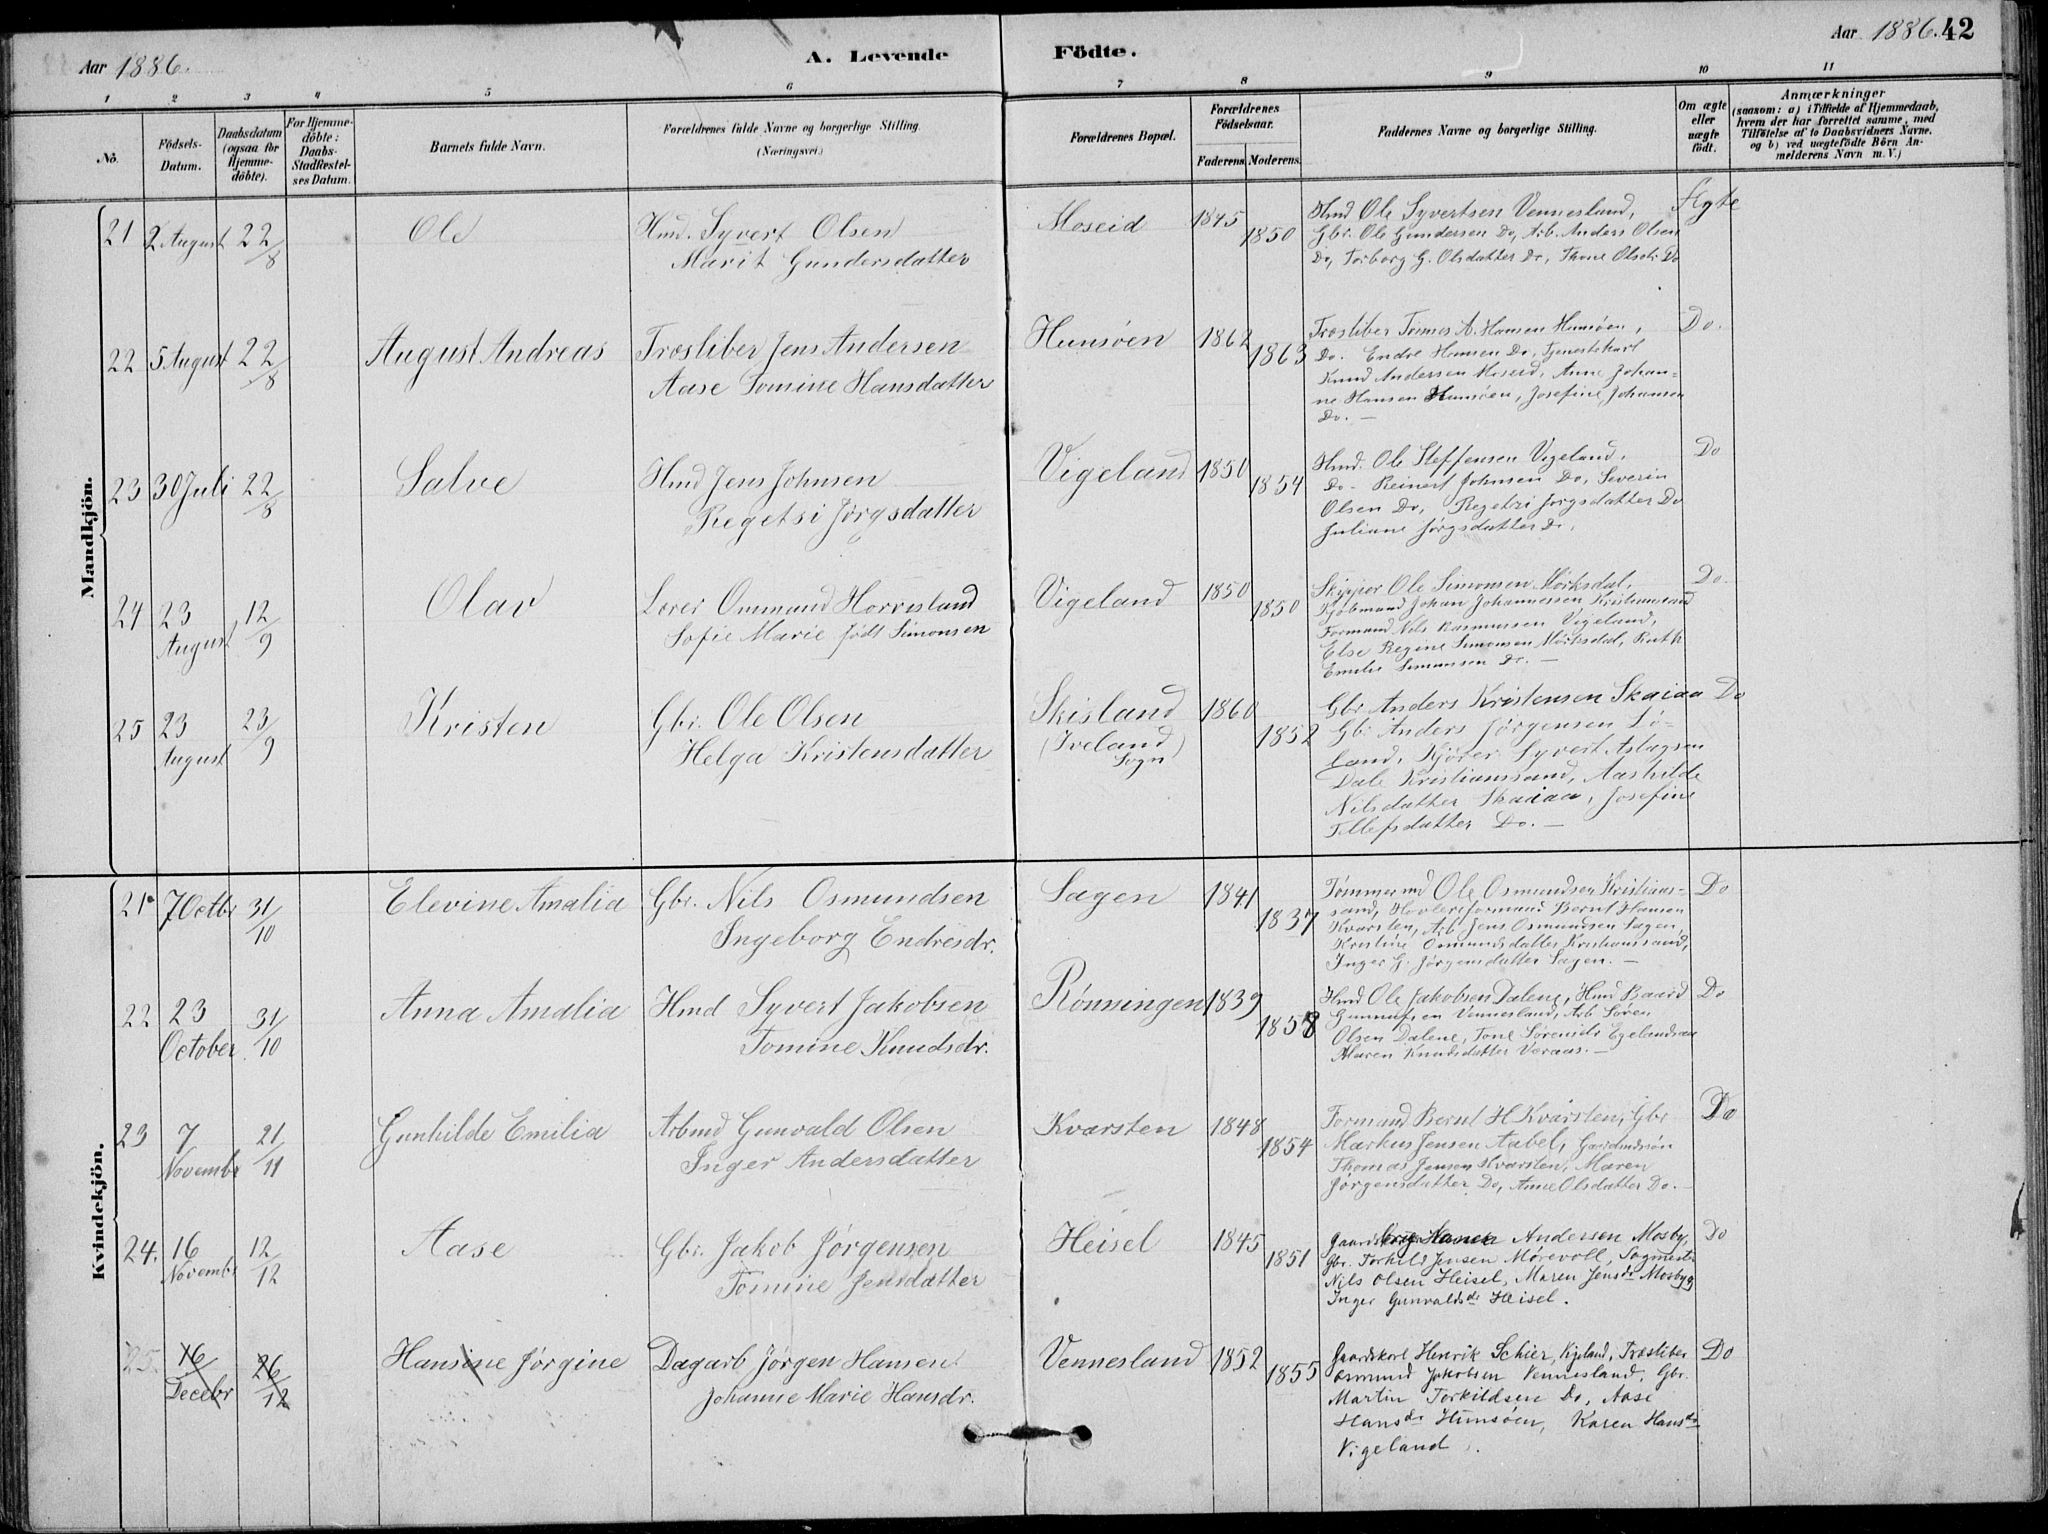 Aar 1886.
A. Levende
Födte.
Aar 1886. 42
1 2 3 4 5 6 7 8 9 10 11
No.
Födsels-
Datum.
Daabsdatum
(ogsaa for
Hjemme-
döbte).
For Hjemme-
döbte:
Daabs-
Stadfæstel-
ses Datum.
Barnets fulde Navn.
Forældrenes fulde Navne og borgerlige Stilling.
(Næringsvei.)
Forældrenes Bopæl.
Forældrenes
Födselsaar.
Faderens Moderens
Faddernes Navne og borgerlige Stilling.
Om ægte
eller
uægte
födt.
Anmærkninger
(saasom: a) i Tilfælde af Hjemmedaab,
hvem der har forrettet samme, med
Tilföielse af to Daabsvidners Navne.
og b) ved uægtefödte Börn An-
melderens Navn m. V.)
Mandkjön.
21 2 August 22/8 Ole
Hmd. Syvert Olsen
Marit Gundersdatter
Moseid 1845 1850
Hmd Ole Syvertsen Vennesland,
Gbr. Ole Gundersen Do, Arb. Anders Olsen
Do, Torborg G. Olsdatter Do, Thone Olsdr Do
Ægte
22 5 August 22/8 August Andreas
Træsliber Jens Andersen
Aase Tomine Hansdatter
Hunsøen 1862 1863
Træsliber Tønnes A. Hansen Hunsøen,
Do. Endre Hansen Do, Tjenestekarl
Knud Andersen Moseid, Anne Johan-
ne Hansen Hunsøen, Josefine Johansen
Do. —
Do.
23 30 Juli 22/8 Salve
Hmd Jens Johnsen
Regetsi Jørgsdatter
Vigeland 1850 1854
Hmd. Ole Steffensen Vigeland,
Do. Reinert Johnsen Do, Severin
Olsen Do, Regetzi Jørgsdatter Do
Juliane Jørgsdatter Do.
Do
24 23 August 12/9 Olav
Lærer Ommund Horrisland
Sofie Marie født Simonsen
Vigeland 1850 1850
Skipper Ole Simonsen Mørksdal,
Kjøbmand Johan Johannessen Kristianssand
Formand Nils Rasmussen Vigeland,
Else Regine Simonsen Mørksdal, Ruth
Emilie Simonsen Do. —
Do.
25 23 August 23/9 Kristen
Gbr. Ole Olsen
Helga Kristensdatter
Skisland
(Iveland
Sogn)
1860 1852
Gbr Anders Kristensen Skaiaa
Gbr Anders Jørgensen Lø-
land, Kjører Syvert Aslagsen
Dale Kristianssand, Aashilde
Nilsdatter Skaiaa, Josefine
Tellefsdatter Do. —
Do
Kvindekjön.
21. 7 Octbr 31/10 Elevine Amalia
Gbr. Nils Osmundsen
Ingeborg Endresdr.
Sagen 1841 1837
Tømmermd Ole Osmundsen Kristians-
sand, Høvleriformand Bernt Hansen
Kvarsten, Arb Jens Osmundsen Sagen,
Kristine Osmundsdatter Kristianssand,
Inger G. Jørgensdatter Sagen. —
Do
22 23 October 31/10 Anna Amalia
Hmd Syvert Jakobsen
Tomine Knudsdr.
Rønningen 1839 1858
Hmd Ole Jakobsen Dalene, Hmd Baard
Gunnufsen Vennesland, Arb Søren
Olsen Dalene, Tone Sørensdr Egelandsaa
Maren Knudsdatter Veraas. —
Do
23 7 Novembr 21/11 Gunhilde Emilia
Arbmd Gunvald Olsen
Inger Andersdatter
Kvarsten 1848 1854
Formand Bernt H Kvarsten, Gbr
Markus Jensen Aabel, Gaardmdssøn
Thomas Jensen Kvarsten, Maren
Jørgensdatter Do, Anne Olsdatter Do. —
Do
24. 16 Novembr 12/12 Aase
Gbr. Jakob Jørgensen
Tomine Jensdatter
Heisel 1845 1851
Andersen Mosby,
Gbr. Torkild Jensen Mørevoll, Sagmester
Nils Olsen Heisel, Maren Jensdr Mosby og
Inger Gunvaldsdr Heisel.
Do
25. 16 Decebr 26/12 Hansine Jørgine
Dagarb Jørgen Hansen
Johanne Marie Hansdr.
Vennesland 1852 1855
Gaardskarl Henrik Schier, Vigeland, Træsliber
Osmund Jakobsen Vennesland, Gbr.
Martin Torkildsen Do, Aase
Hansdr Hunsøen, Karen Hansdr
Vigeland.
Do